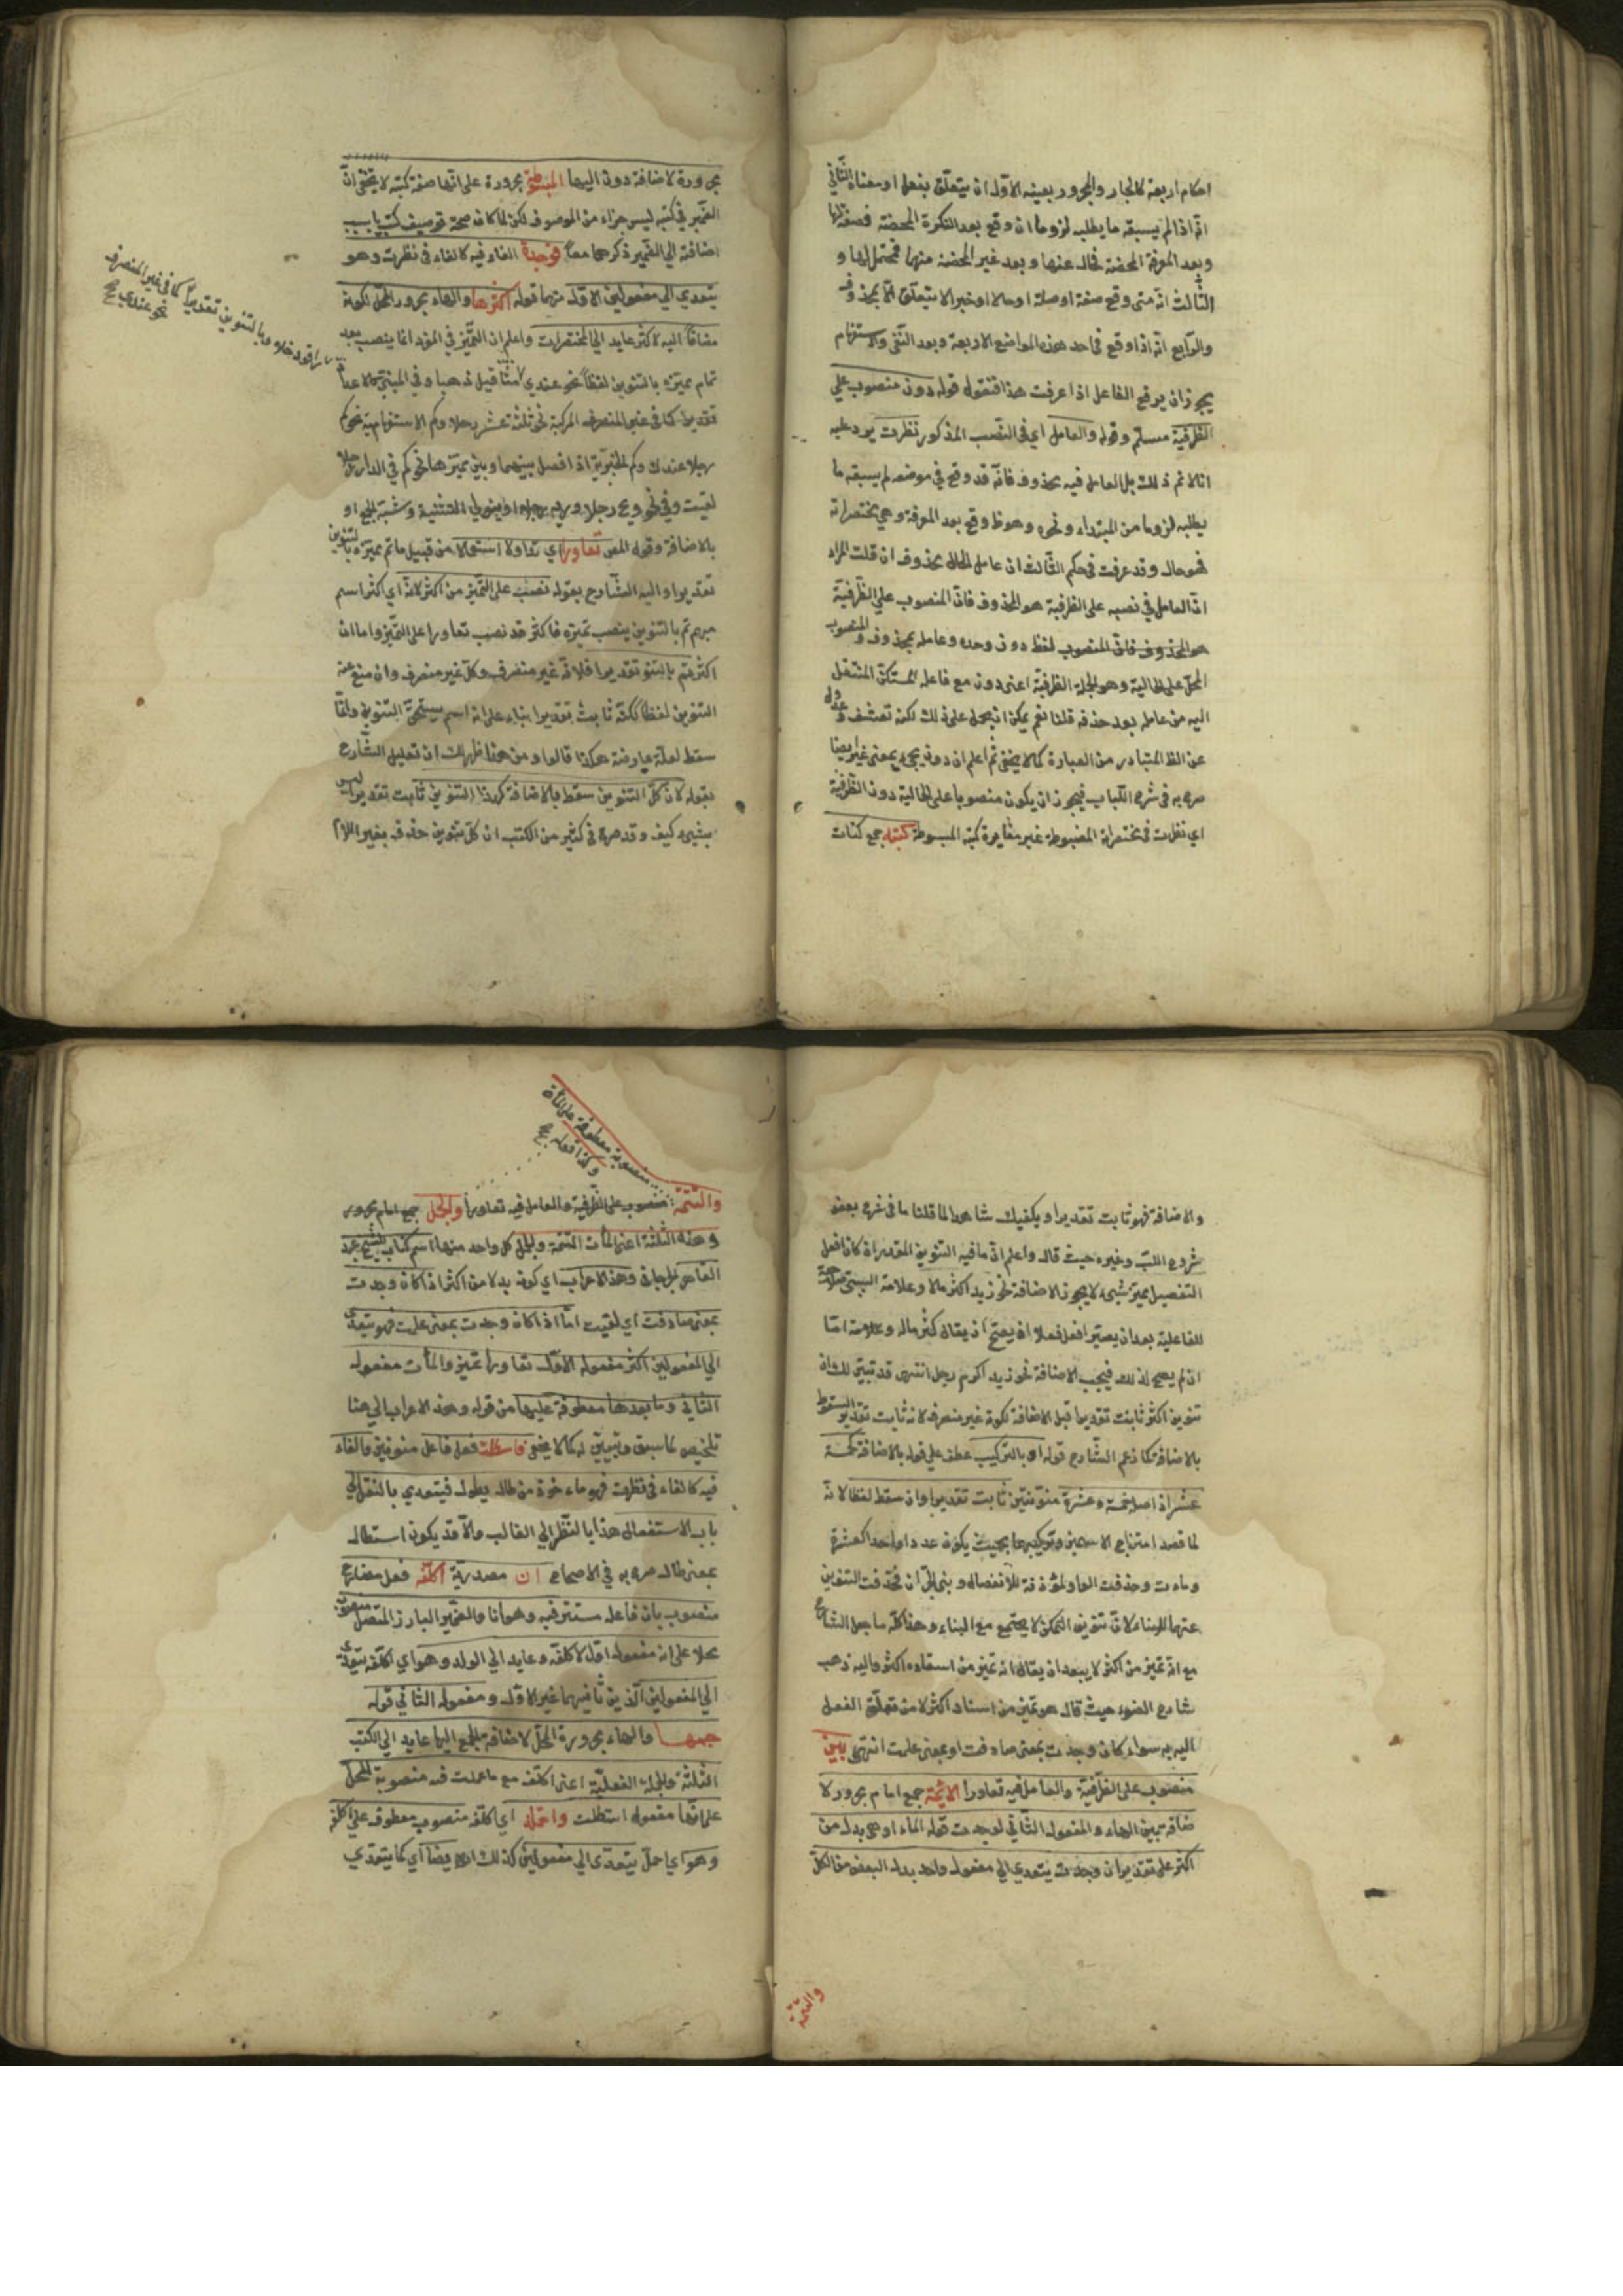 احكام اربعة كالجار والمجرور بعينه الاول ان يتعلق بفعل او معناه الثاني
انه اذا لم يسبقه ما يطلبه لزوما ان وقع بعد النكرة المحضة فصفة لها
وبعد المعرفة المحضة فحال عنها وبعد غير المحضة منها فمحتمل لها و
الثالث انه متى وقع صفة او صلة او حالا او خبرا لا يتعلق الا بمحذوف
والرابع انه اذا وقع في احد هذه المواضع الاربعة وبعد النفي والاستفهام
يجوز ان يرفع الفاعل اذا عرفت هذا فنقول قوله دون منصوب على
الظرفية مسلم وقوله والعامل اي في النصب المذكور نظرت يرد عليه
انا لا نم ذلك بل العامل فيه محذوف فانه قد وقع في موضع لم يسبقه ما
يطلبه لزوما من المبتداء ونحوه وهو ظ وقع بعد المعرفة وهي مختصراته
فهو حال وقد عرفت في حكم الثالث ان عامل الحال محذوف ان قلت المراد
ان العامل في نصبه على الظرفية هو المحذوف فان المنصوب على الظرفية
هو المحذوف فان المنصوب لفظ دون وحده وعامله محذوف والمنصوب
المحل على الحالية وهو الجملة الظرفية اعني دون مع فاعله المستكن المنتقل
اليه من عامله بعد حذفه قلنا نعم يمكن ان يحمل على ذلك لكنه تعسف وعدول
عن الظ المتبادر من العبارة كما لا يخفى ثم اعلم ان دون يجيء بمعنى غير ايضا
صرح به في شرح اللباب فيجوز ان يكون منصوبا على الحالية دون الظرفية
اي نظرت في مختصراته المضبوطة غير مغايرة كتبه المبسوطة كتبه جمع كتاب
مجرورة لاضافة دون اليها المبسوطة مجرورة على انها صفة كتبه لا يخفى ان
الضمير في كتبه ليس جزاء من الموصوف لكن لما كان صحة توصيف كتب بسبب
اضافته الى الضمير ذكرهما معا فوجدت الفاء فيه كالفاء في نظرت وهو
يتعدى الى مفعولين الاول منهما قوله اكثرها والهاء مجرور المحل لكونه
مضافا اليه لاكثر عايد الى المختصرات واعلم ان التميز في المفرد انما ينصب بعد
تمام مميزه بالتنوين لفظا نحو عندي مثاقيل ذهبا وفي المبني
تقديرا كما في غير المنصرف المركبة نحو ثلثة عشر رجلا وكم الاستفهامية نحو كم
رجلا عندك وكم الخبرية اذا فصل بينهما وبين مميزها نحو كم في الدار رجلا
لقيت وفي نحو ويحه رجلا وربه رجلا او بنوني التثنية وشبه الجمع او
بالاضافة وقول المص تعاورا اي تداولا استعمالا من قبيل ما تم مميزه بالتنوين
تقديرا واليه الشارح بقوله نصب على التميز من اكثر لانه اي اكثر اسم
مبهم تم بالتنوين ينصب تميزه فاكثر قد نصب تعاورا على التميز واما ان
اكثر تم بالتنو تقديرا فلانه غير منصرف وكل غير منصرف وان منع عنه
التنوين لفظا لكنه ثابت تقديرا بناء على انه اسم يستحق التنوين وانما
سقط لعلة عارضة هكذا قالوا ومن هذا ظهر لك ان تعليل الشارح
بقوله لان كل التنوين سقط بالاضافة كهذا التنوين ثابت تقديرا ليس
بشيء كيف وقد صرح في كثير من الكتب ان كل تنوين حذف بغير اللام
وبالتنوين تقديرا كما في غير المنصرف
نحو عندي
والاضافة فهو ثابت تقديرا ويكفيك شاهدا لما قلنا ما في شرح بعض
شروح اللب وغيره حيث قال واعلم ان ما فيه التنوين المقدر ان كان افعل
التفضيل بميز شيء لا يجوز الاضافة نحو زيد اكثر مالا وعلامة
للفاعلية بعد ان يصير افعل فعلا ان يصح ان يقال كثر ماله وعلامته اما
ان لم يصح لذلك فيجب الاضافة نحو زيد اكرم رجل انتهى قد تبين لك ان
تنوين اكثر ثابت تقديرا قبل الاضافة لكونه غير منصرف لا نه ثابت تقديرا لسقوط
بالاضافة كما زعم الشارح قوله او بالتركيب عطف على قوله بالاضافة كخمسة
عشر اذ اصله خمسة وعشرة منونتين ثابت تقديرا وان سقط لفظا لانه
لما قصد امتزاج الاسمين وتركيبهما بحيث يكون عددا واحدا كعشرة
وماءت وحذفت الواو المؤذنة للانفصال وبني الثان فحذفت التنوين
عنها للبناء لان تنوين التمكن لا يجتمع مع البناء وهذا كله ما جعل الشارح
مع انه تميز من اكثر لا يبعد ان يقال انه تميز من اسناده اكثر واليه ذهب
شارح الضوء حيث قال هو تميز من اسناد اكثر لا من تعلق الفعل
اليه به سواء كان وجدت بمعنى صادفت او بمعنى علمت انتهى بين
منصوب على الظرفية والعامل فيه تعاورا الائمة جمع امام مجرور لا
ضافة بين الهاء والمفعول الثاني لوجدت قوله الماءة وهي بدل من
اكثر على تقدير ان وجدت يتعدى الى مفعول واحد بدل البعض من الكل
والتتمة
منصوبة معطوفة على الماءة
وكذا قوله
والتتمة منصوب على الظرفية والعامل فيه تعاورا والجمل جمع امام مجرور
وهذه الثلثة اعني الماءت التتمة والجمل كل واحد منها اسم كتاب للشيخ عبد
القاهر الجرجاني وهذا الاعراب اي كونه بدلا من اكثر اذا كان وجدت
بمعنى صادفت اي لقيت اما اذا كان وجدت بمعنى علمت فهو يتعدى
الى المفعولين اكثر مفعوله الاول تعاورا تميز والماءت مفعوله
الثاني وما بعدها معطوفة عليها من قوله وهذه الاعراب الى هنا
تلخيص لما سبق وتبيين له كما لا يخفى فاستطلت فعل فاعل منونين والفاء
فيه كالفاء في نظرت فهو ماءخوذ من طال يطول فيتعدى بالنقل الى
باب الاستفعال هذا بالنظر الى الغالب والا قد يكون استطال
بمعنى طال صرح به في الصحاح ان مصدرية اكلفه فعل مضارع
منصوب بان فاعله مستتر فيه وهو انا والضمير البارز المتصل منصوب
محلا على انه مفعوله اول لاكلفه وعايد الى الولد وهو اي اكلفه يتعدى
الى المفعولين الذين ثانيهما غير الاول ومفعوله الثاني قوله
جمعها والهاء مجرورة المحل لاضافة الجمع اليها عايد الى الكتب
الثلثة والجملة الفعلية اعني اكلف مع ما عملت فيه منصوبة المحل
على انها مفعول استطلت واحمله اي اكلفه منصوب معطوف على اكلفه
وهو اي احمل يتعدى الى مفعولين كذلك ايضا اي كما يتعدى